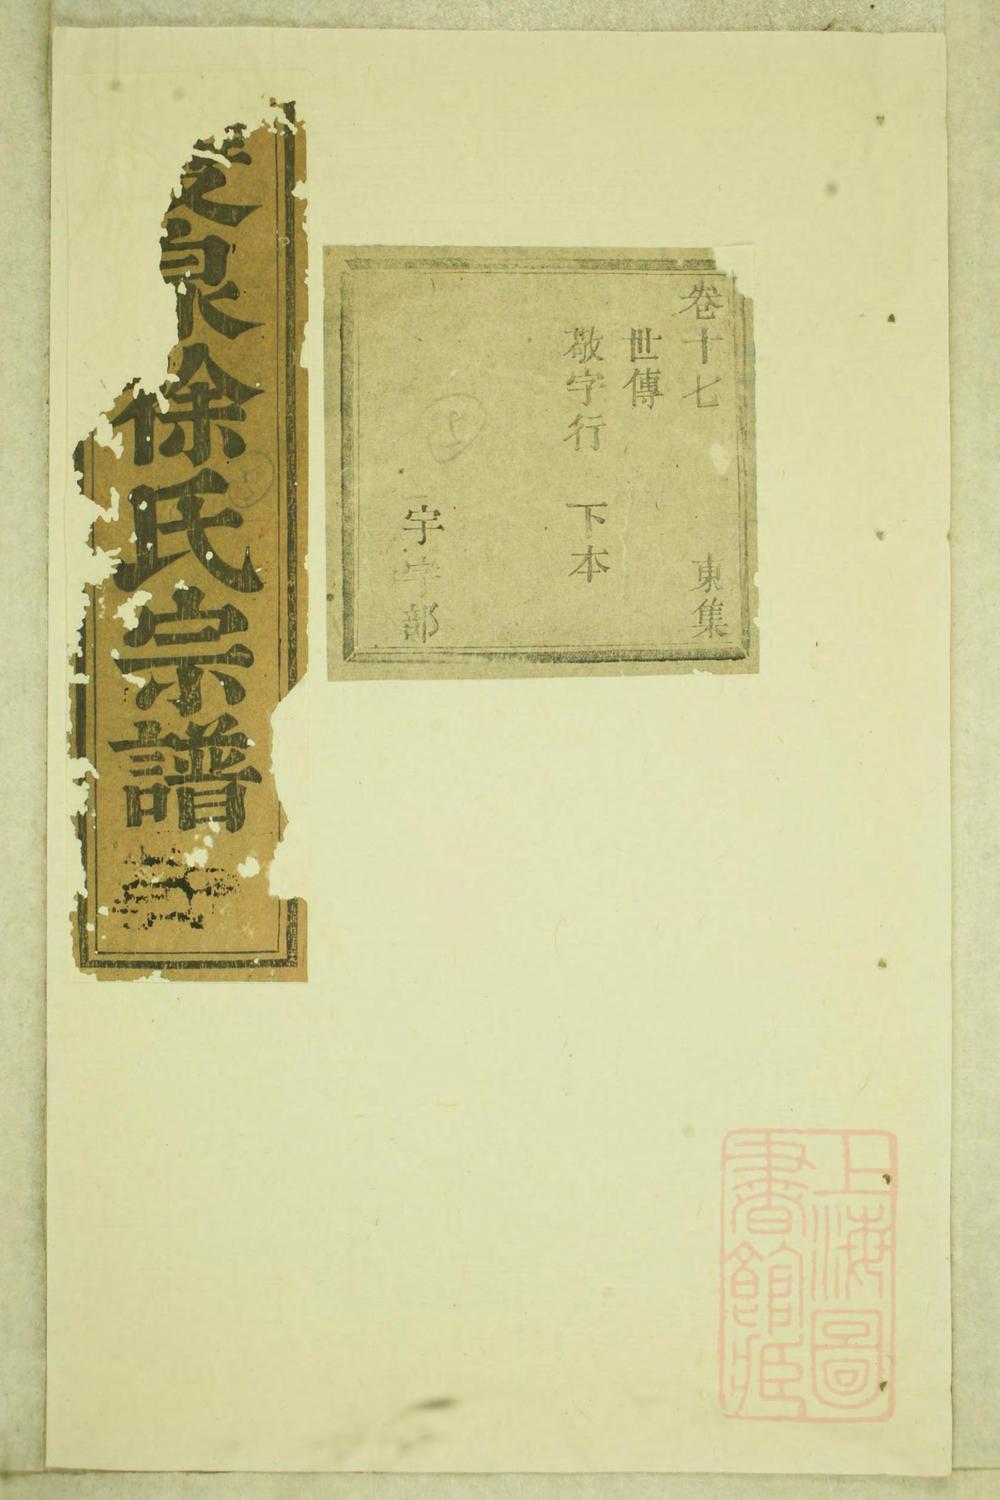 卷十七　東集
世傳
敬字行　下本
宇字部
泉徐氏宗譜
上海圖
書館藏